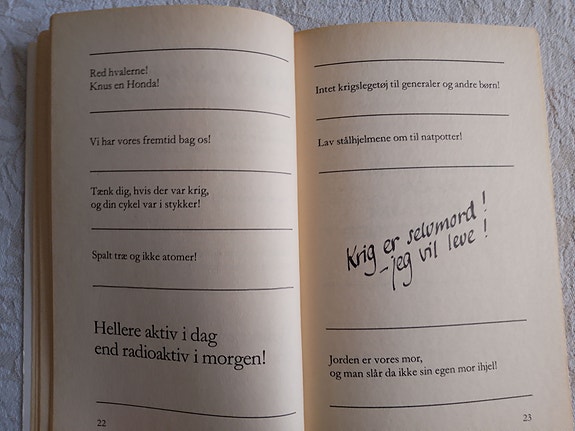 Red hvalerne!
Knus en Honda!
Vi har vores fremtid bag os!
Tænk dig, hvis der var krig,
og din cykel var i stykker!
Spalt træ og ikke atomer!
Hellere aktiv i dag
end radioaktiv i morgen!
22
Intet krigslegetøj til generaler og andre børn!
Lav stålhjelmene om til natpotter!
Krig er selvmord!
– jeg vil leve!
Jorden er vores mor,
og man slår da ikke sin egen mor ihjel!
23